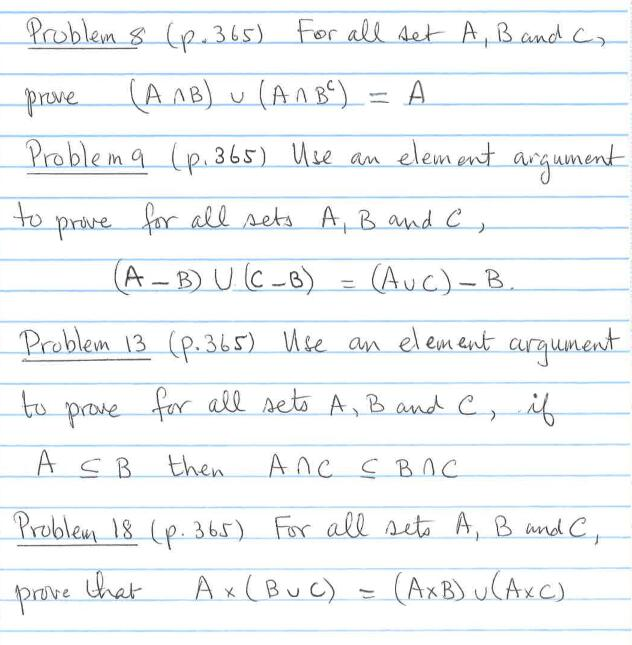 Problem 8 (p.365) For all set A, B and C,
prove (A ∩ B) ∪ (A ∩ Bᶜ) = A
Problem 9 (p.365) Use an element argument
to prove for all sets A, B and C,
(A – B) ∪ (C – B) = (A ∪ C) – B.
Problem 13 (p.365) Use an element argument
to prove for all sets A, B and C, if
A ⊆ B then A ∩ C ⊆ B ∩ C
Problem 18 (p.365) For all sets A, B and C,
prove that A × (B ∪ C) = (A × B) ∪ (A × C)